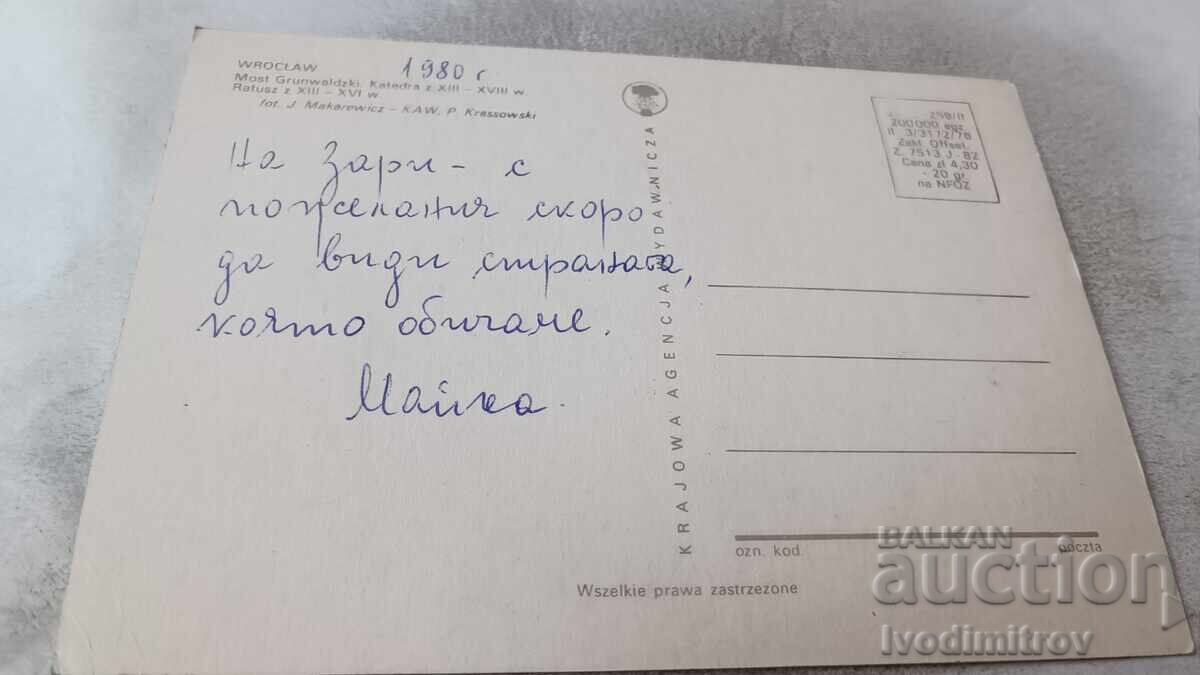 WROCŁAW
1980 г
Most Grunwaldzki. Katedra z XIII – XVIII w.
Ratusz z XIII – XVI w.
fot. J. Makarewicz – KAW, P. Krassowski
На Зари – с
пожелания скоро
да види страната,
която обичаме.
Майка.
KRAJOWA AGENCJA WYDAWNICZA
298/II
200000 egz.
II 3/3172/78
Zakł. Offset.
Z. 7513 J-82
Cena zł 4,30
- 20 gr
na NFOZ
ozn. kod
poczta
Wszelkie prawa zastrzeżone
BALKAN
auction
Ivodimitrov